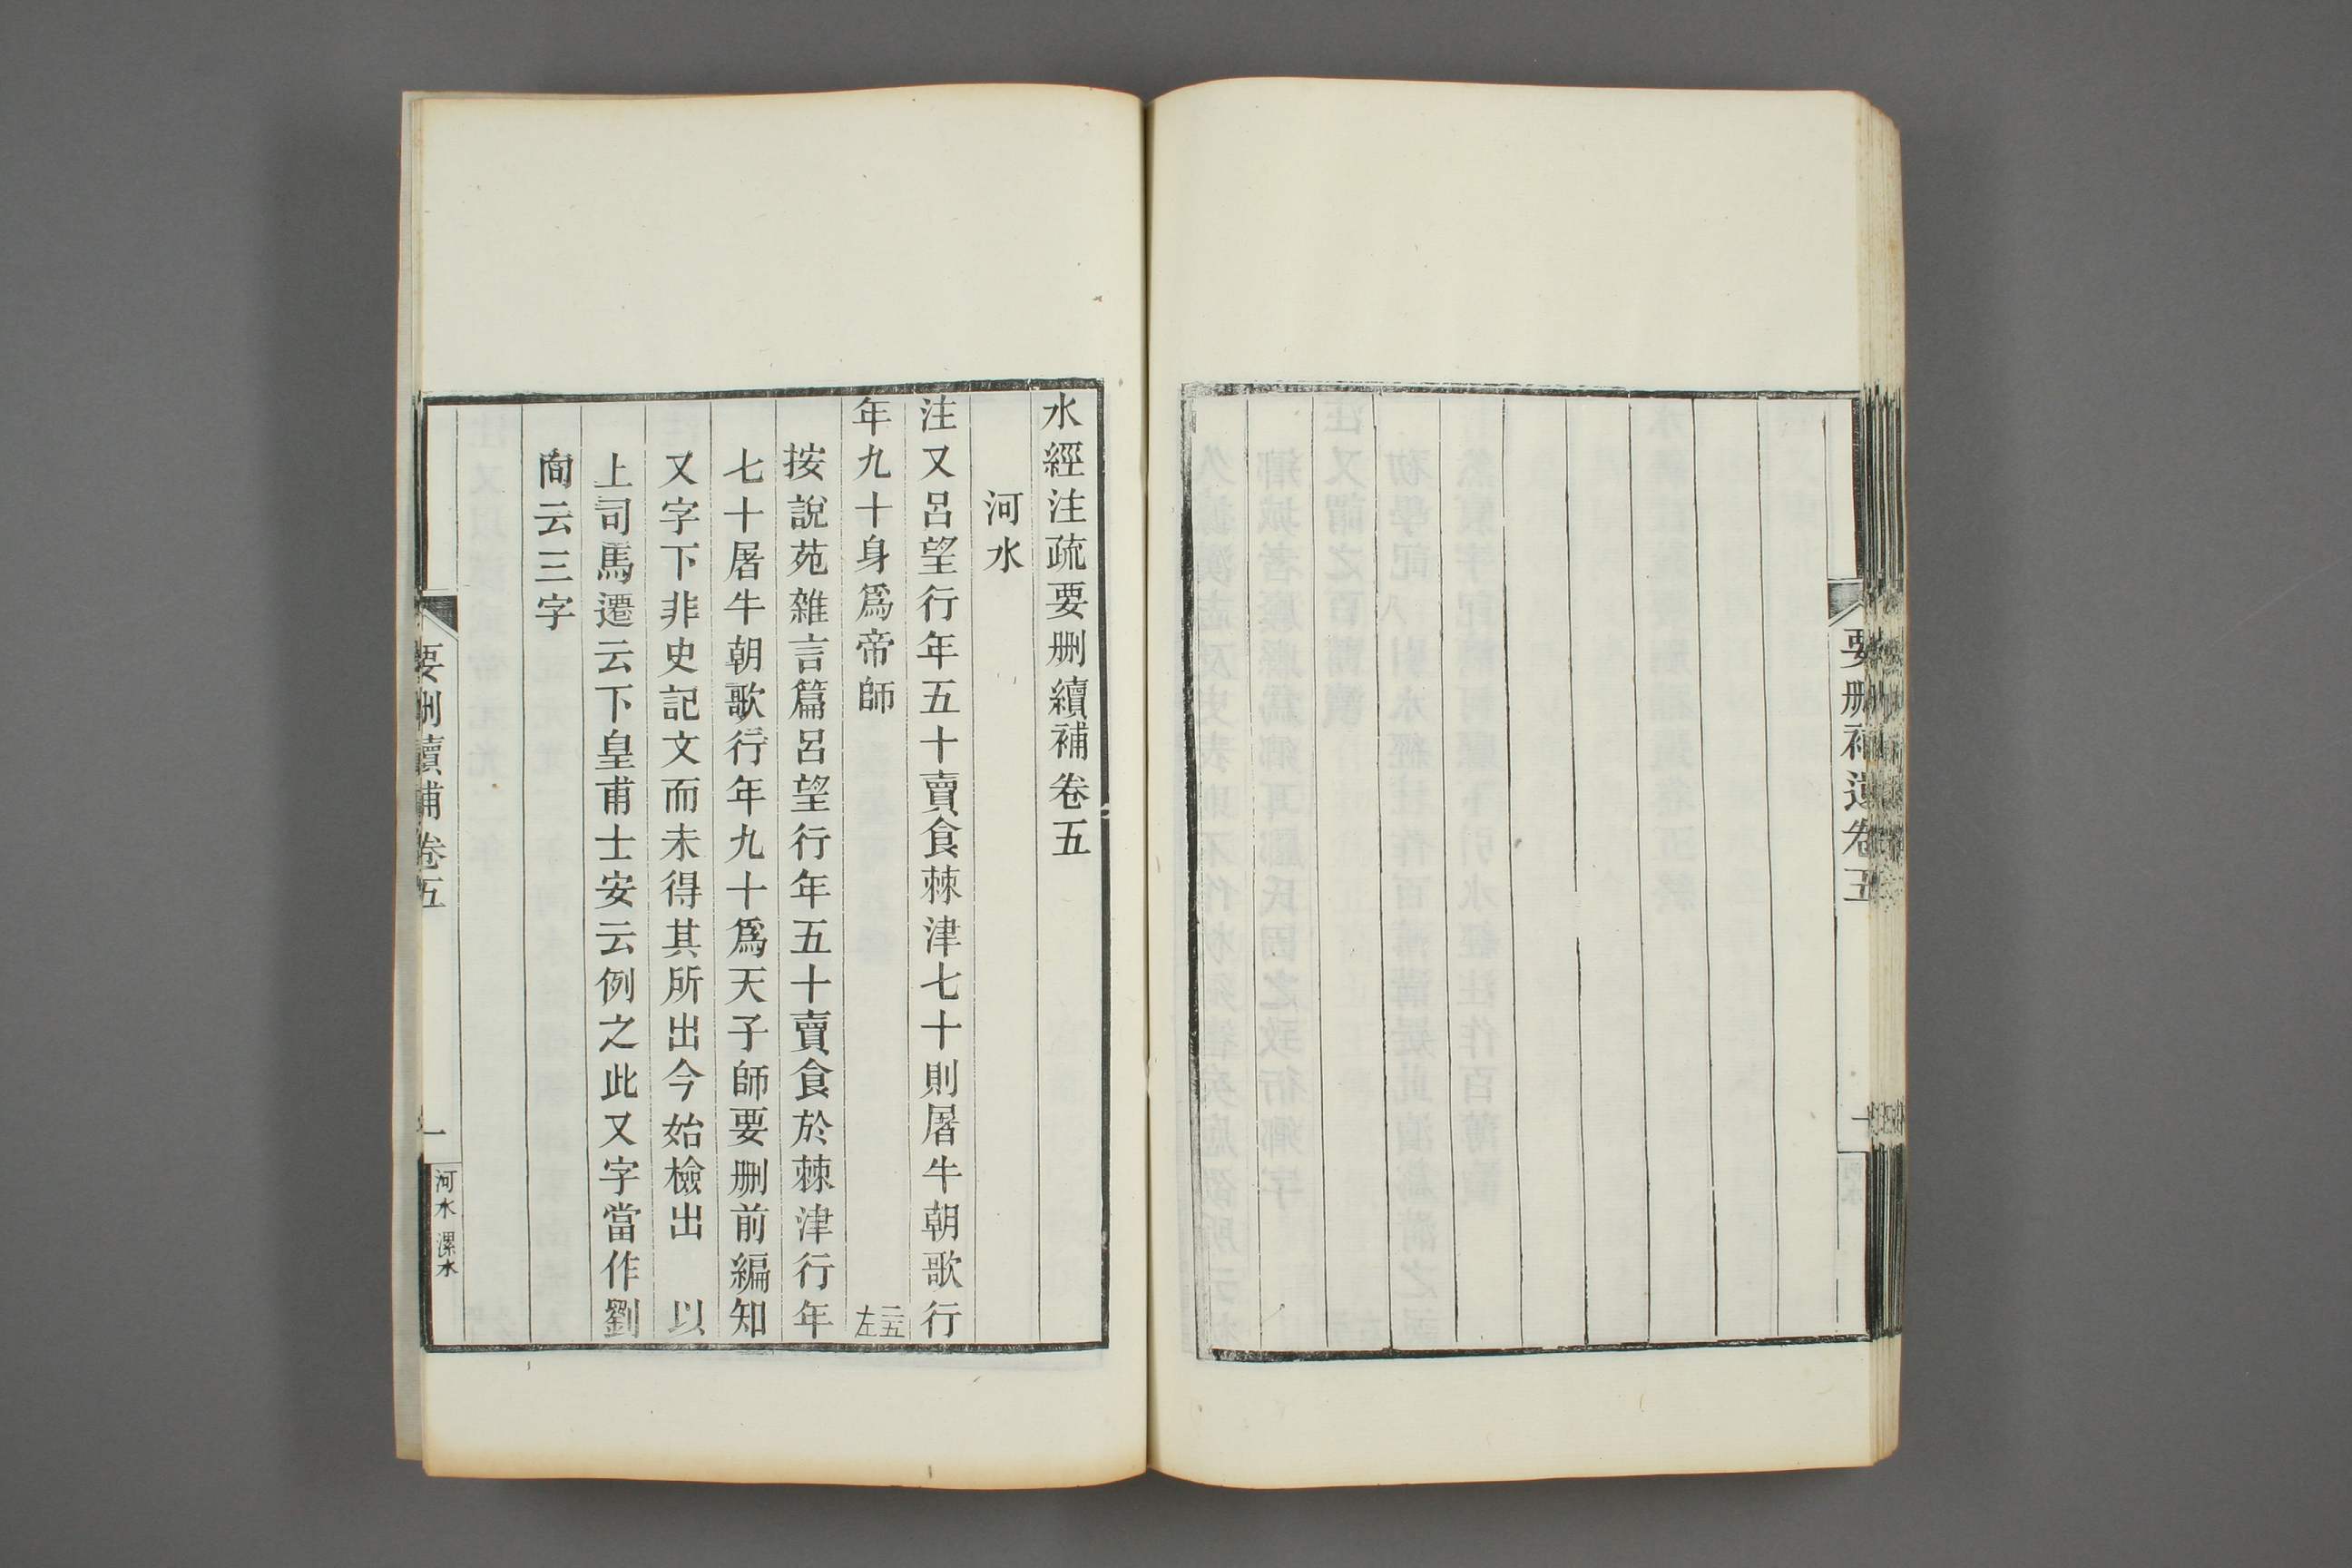 要刪補遺卷五
一
水經注疏要刪續補卷五
河水
注又呂望行年五十賣食棘津七十則屠牛朝歌行
年九十身爲帝師 二五左
按說苑雜言篇呂望行年五十賣食於棘津行年
七十屠牛朝歌行年九十爲天子師要刪前編知
又字下非史記文而未得其所出今始檢出 以
上司馬遷云下皇甫士安云例之此又字當作劉
向云三字
要刪續補卷五
一
河水 漯水